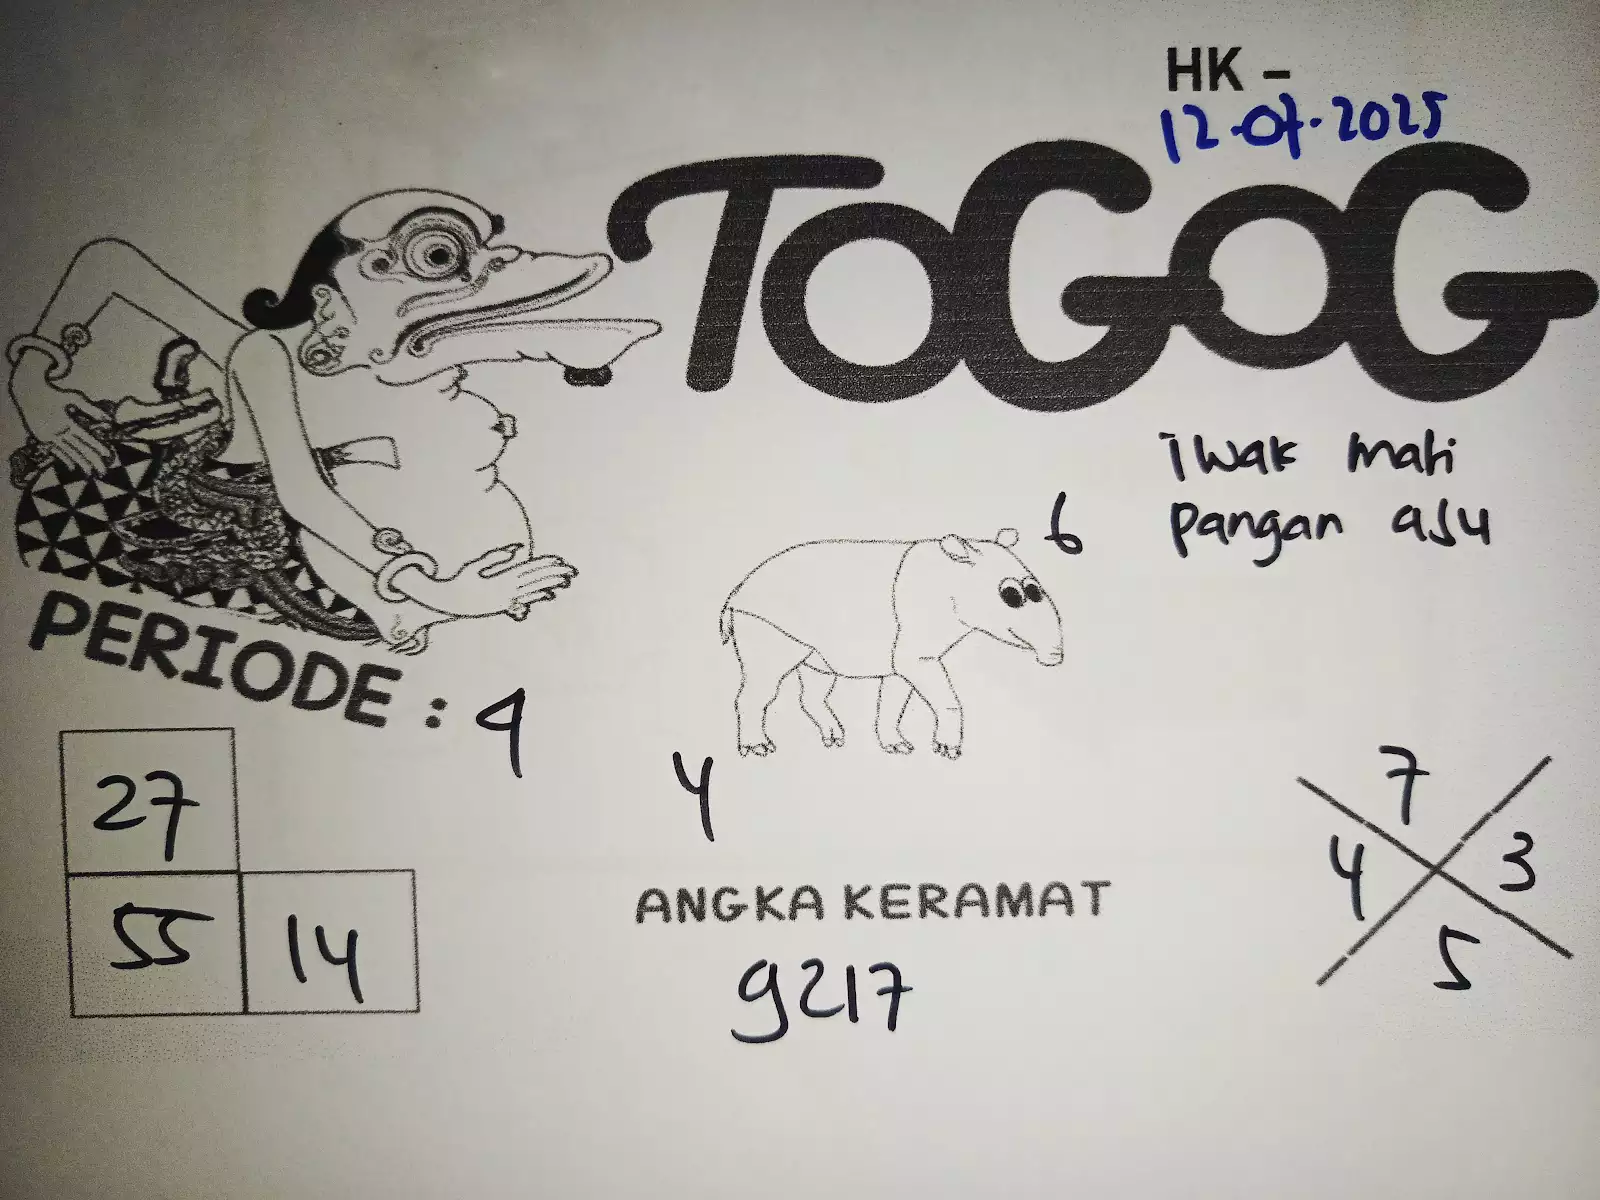 HK –
12.07.2025
TOGOG
iwak mati
pangan asu
6
PERIODE : 4
4
27
55 14
ANGKA KERAMAT
9217
7
4 3
5